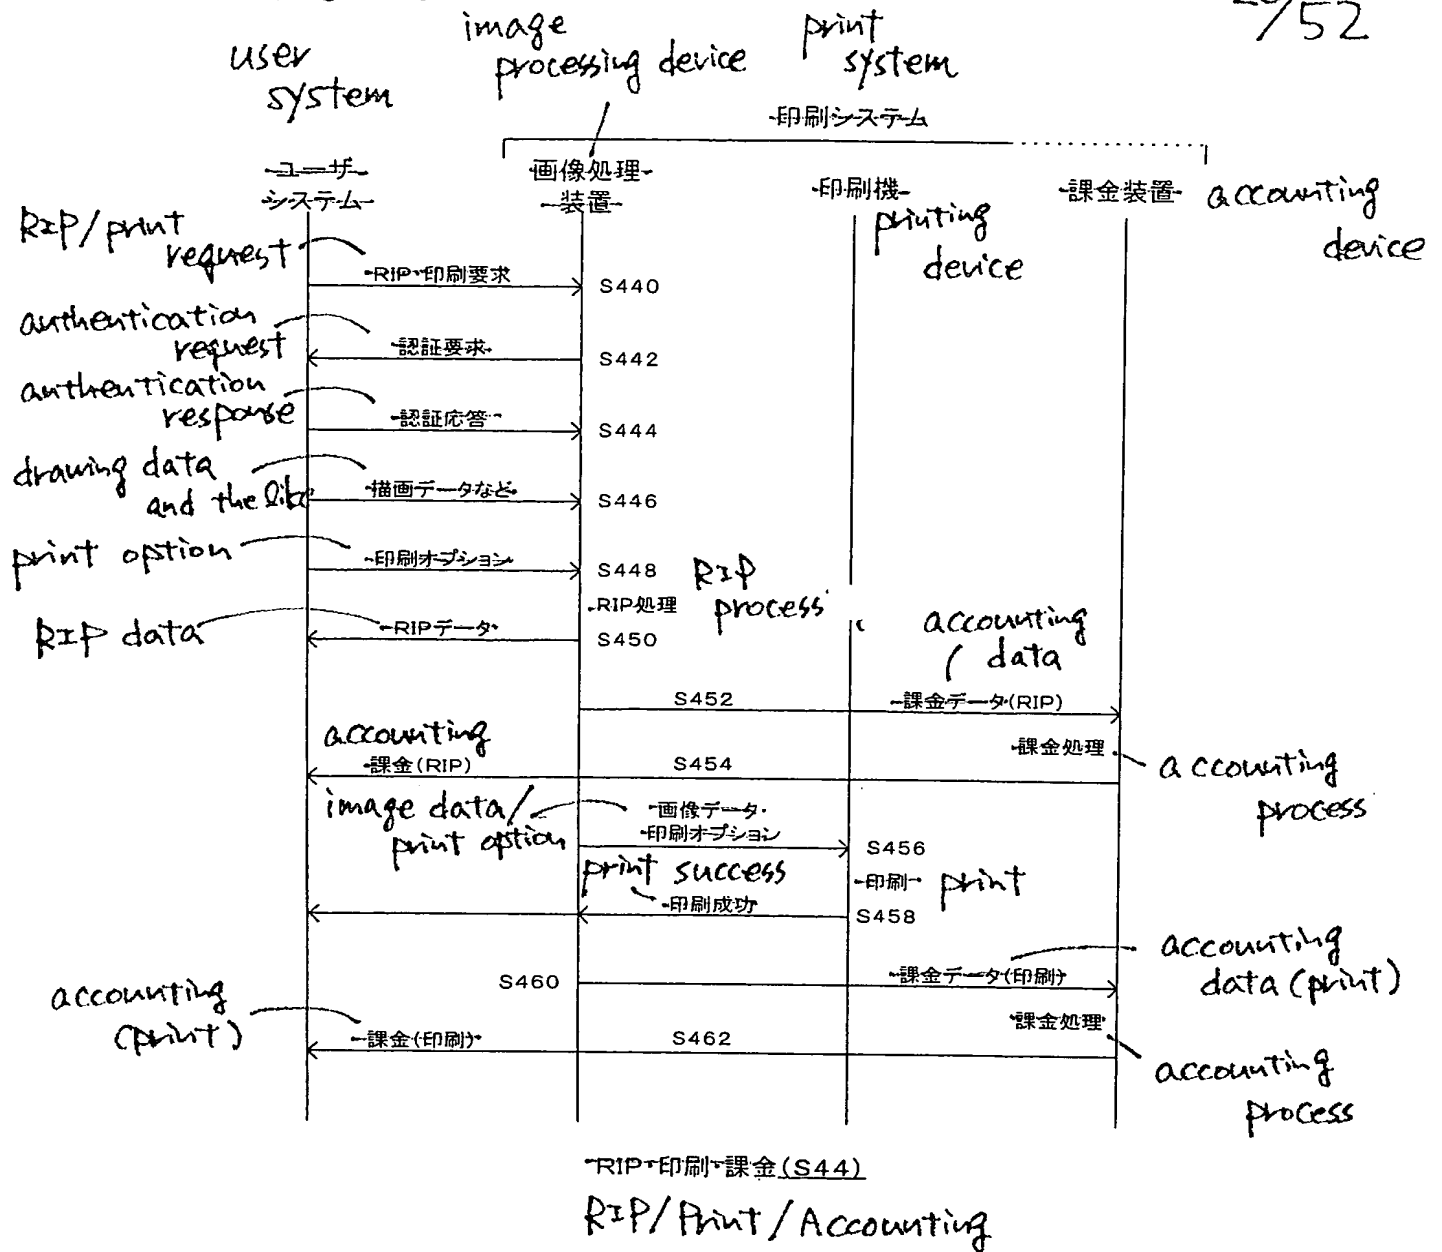 /52
user
system
image
processing device
print
system
印刷システム
ユーザ
システム
画像処理
装置
印刷機
printing
device
課金装置
accounting
device
RIP/print
request
RIP・印刷要求
S440
authentication
request
認証要求
S442
authentication
response
認証応答
S444
drawing data
and the like
描画データなど
S446
print option
印刷オプション
S448
RIP処理
RIP
process
RIP data
RIPデータ
S450
accounting
data
S452
課金データ(RIP)
課金処理
accounting
process
accounting
課金(RIP)
S454
image data/
print option
画像データ・
印刷オプション
S456
印刷
print
print success
印刷成功
S458
S460
課金データ(印刷)
accounting
data (print)
課金処理
accounting
process
accounting
(print)
課金(印刷)
S462
RIP・印刷・課金(S44)
RIP/Print/Accounting